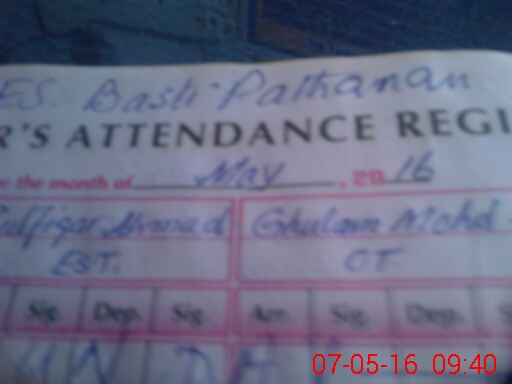 ES. Basti Pathanan
R'S ATTENDANCE REGI
for the month of May, 2016
Zulfiqar Ahmad Ghulam Mohd
EST. OT.
Sig. Dep. Sig. Arr. Sig. Dep. S
07-05-16 09:40